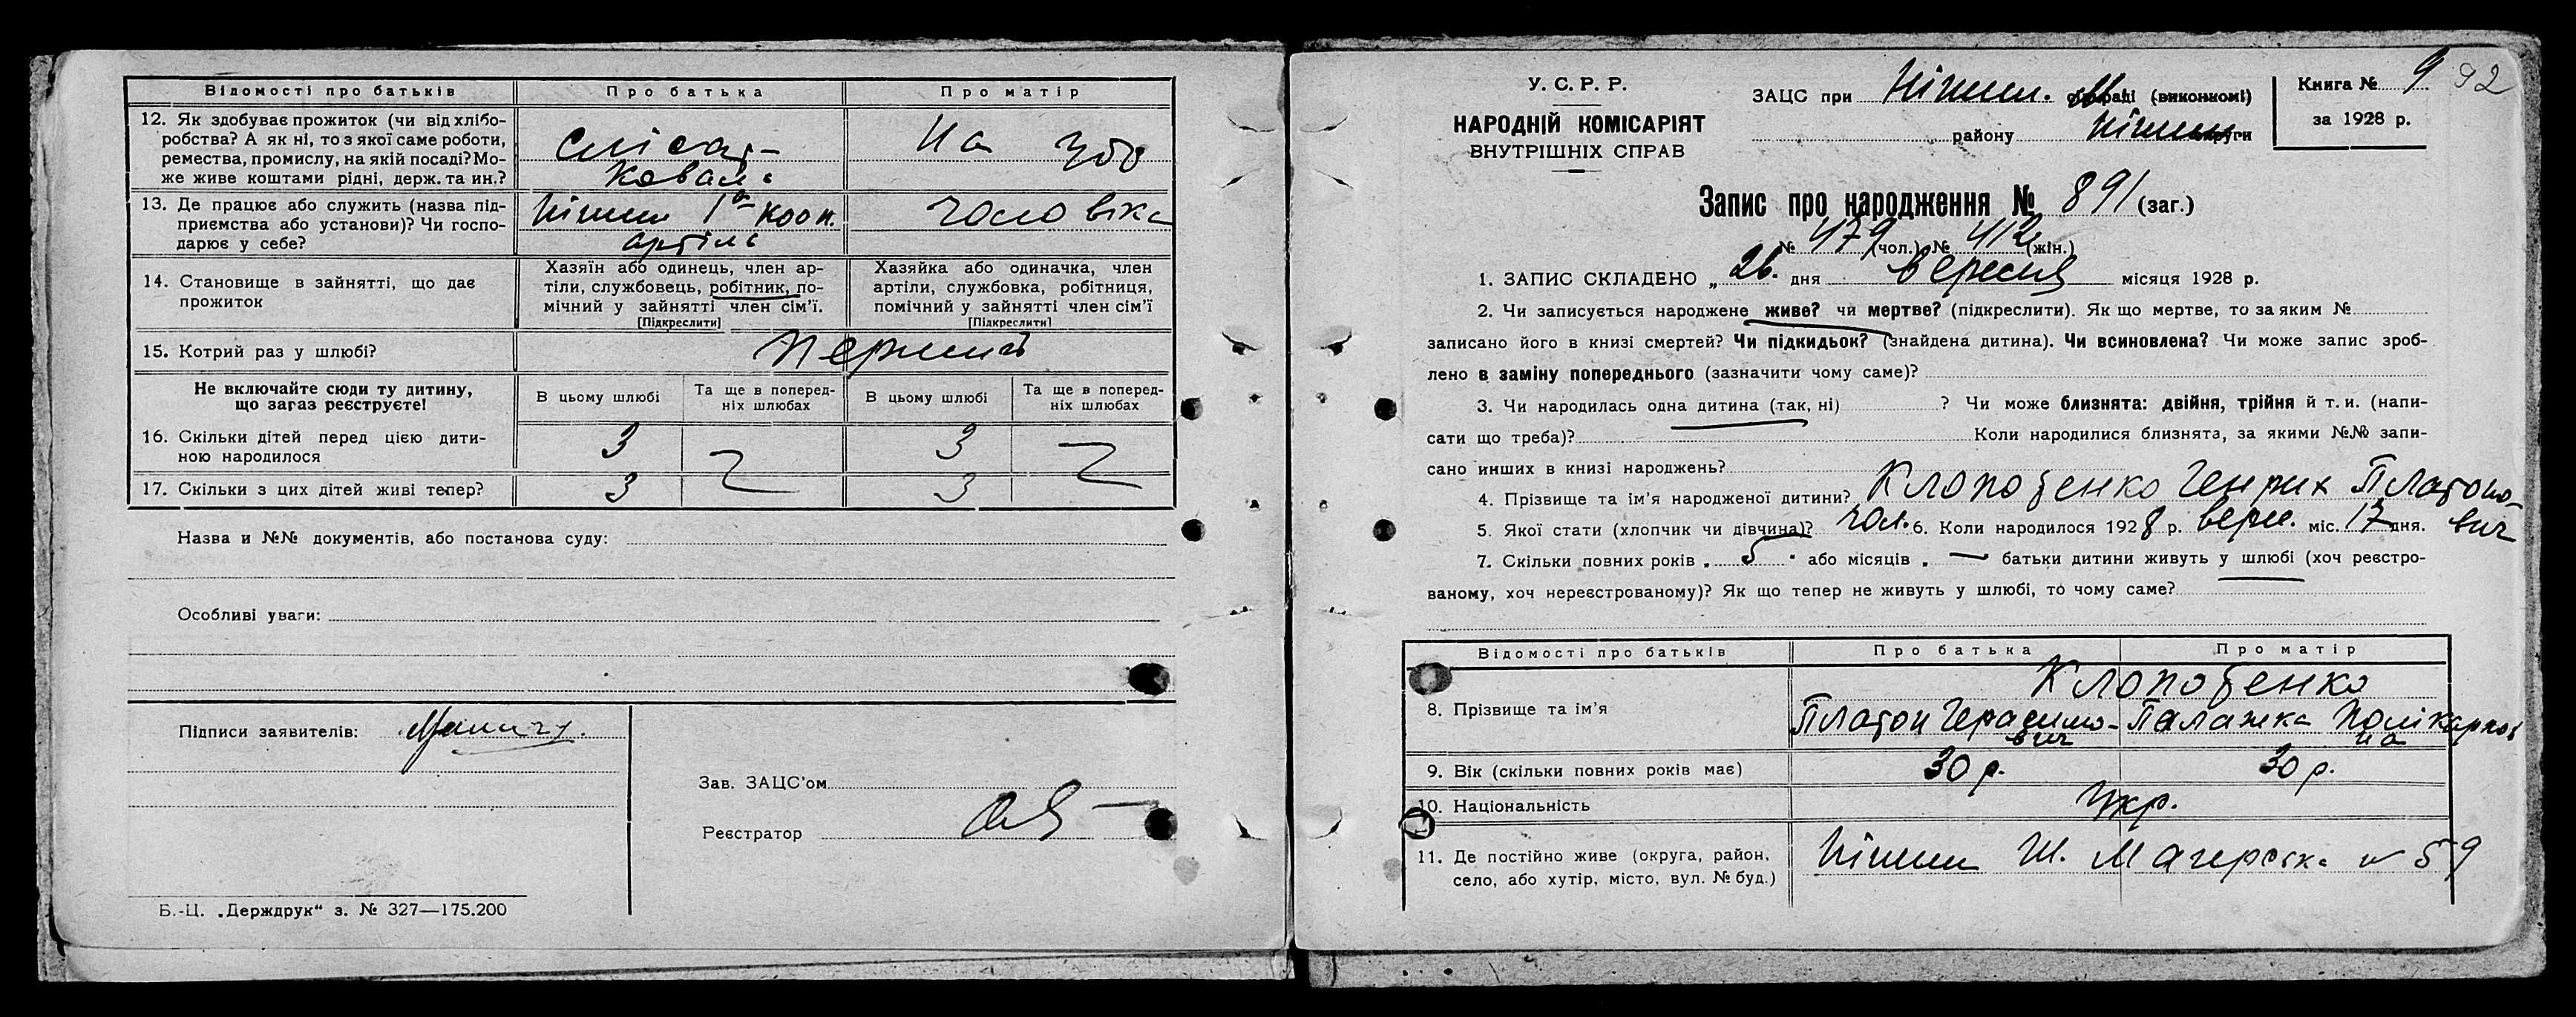 Відомості про батьків
Про батька
Про матір
12. Як здобуває прожиток (чи від хлібо-
робства? А як ні, то з якої саме роботи,
ремества, промислу, на якій посаді? Мо-
же живе коштами рідні, держ. та ин.?
Слісар-
Коваль
На
13. Де працює або служить (назва під-
приємства або установи)? Чи госпо-
дарює у себе?
Ніжин 1а кооп.
артіль
чоловіка
14. Становище в зайнятті, що дає
прожиток
Хазяїн або одинець, член ар-
тіли, службовець, робітник, по-
мічний у зайнятті член сім'ї.
[Підкреслити]
Хазяйка або одиначка, член
артіли, службовка, робітниця,
помічний у зайнятті член сім'ї
[Підкреслити]
15. Котрий раз у шлюбі?
Перший
Не включайте сюди ту дитину,
що зараз реєструєте!
В цьому шлюбі
Та ще в поперед-
ніх шлюбах
В цьому шлюбі
Та ще в поперед-
ніх шлюбах
16. Скільки дітей перед цією дити-
ною народилося
3
3
17. Скільки з цих дітей живі тепер?
3
3
Назва и №№ документів, або постанова суду:
Особливі уваги:
Підписи заявителів:
Зав. ЗАЦС'ом
Реєстратор
Б.-Ц. „Держдрук" з. № 327—175.200
У. С. Р. Р.
НАРОДНІЙ КОМІСАРІЯТ
ВНУТРІШНІХ СПРАВ
ЗАЦС при Ніжин. (виконкомі)
району Ніжин округи
Книга № 9
92
за 1928 р.
Запис про народження № 891 (заг.)
№ 479 (чол.) № 412 (жін.)
1. ЗАПИС СКЛАДЕНО „ 26. дня вересня місяця 1928 р.
2. Чи записується народжене живе? чи мертве? (підкреслити). Як що мертве, то за яким №
записано його в книзі смертей? Чи підкидьок? (знайдена дитина). Чи всиновлена? Чи може запис зроб-
лено в заміну попереднього (зазначити чому саме)?
3. Чи народилась одна дитина (так, ні) ? Чи може близнята: двійня, трійня й т. и. (напи-
сати що треба)? Коли народилися близнята, за якими №№ запи-
сано инших в книзі народжень?
4. Прізвище та ім'я народженої дитини? Клопотенко Генрих Платоно-
вич
5. Якої стати (хлопчик чи дівчина)? чол. 6. Коли народилося 1928 р. верес. міс. 17 дня.
7. Скільки повних років „ 5 " або місяців „ — батьки дитини живуть у шлюбі (хоч реєстро-
ваному, хоч нереєстрованому)? Як що тепер не живуть у шлюбі, то чому саме?
Відомості про батьків
Про батька
Про матір
8. Прізвище та ім'я
Клопотенко
Платон Герасимо-
вич
Палажка Полікарпов
на
9. Вік (скільки повних років має)
30 р.
30 р.
10. Національність
Укр.
11. Де постійно живе (округа, район,
село, або хутір, місто, вул. № буд.)
Ніжин Ш. Магерська № 59